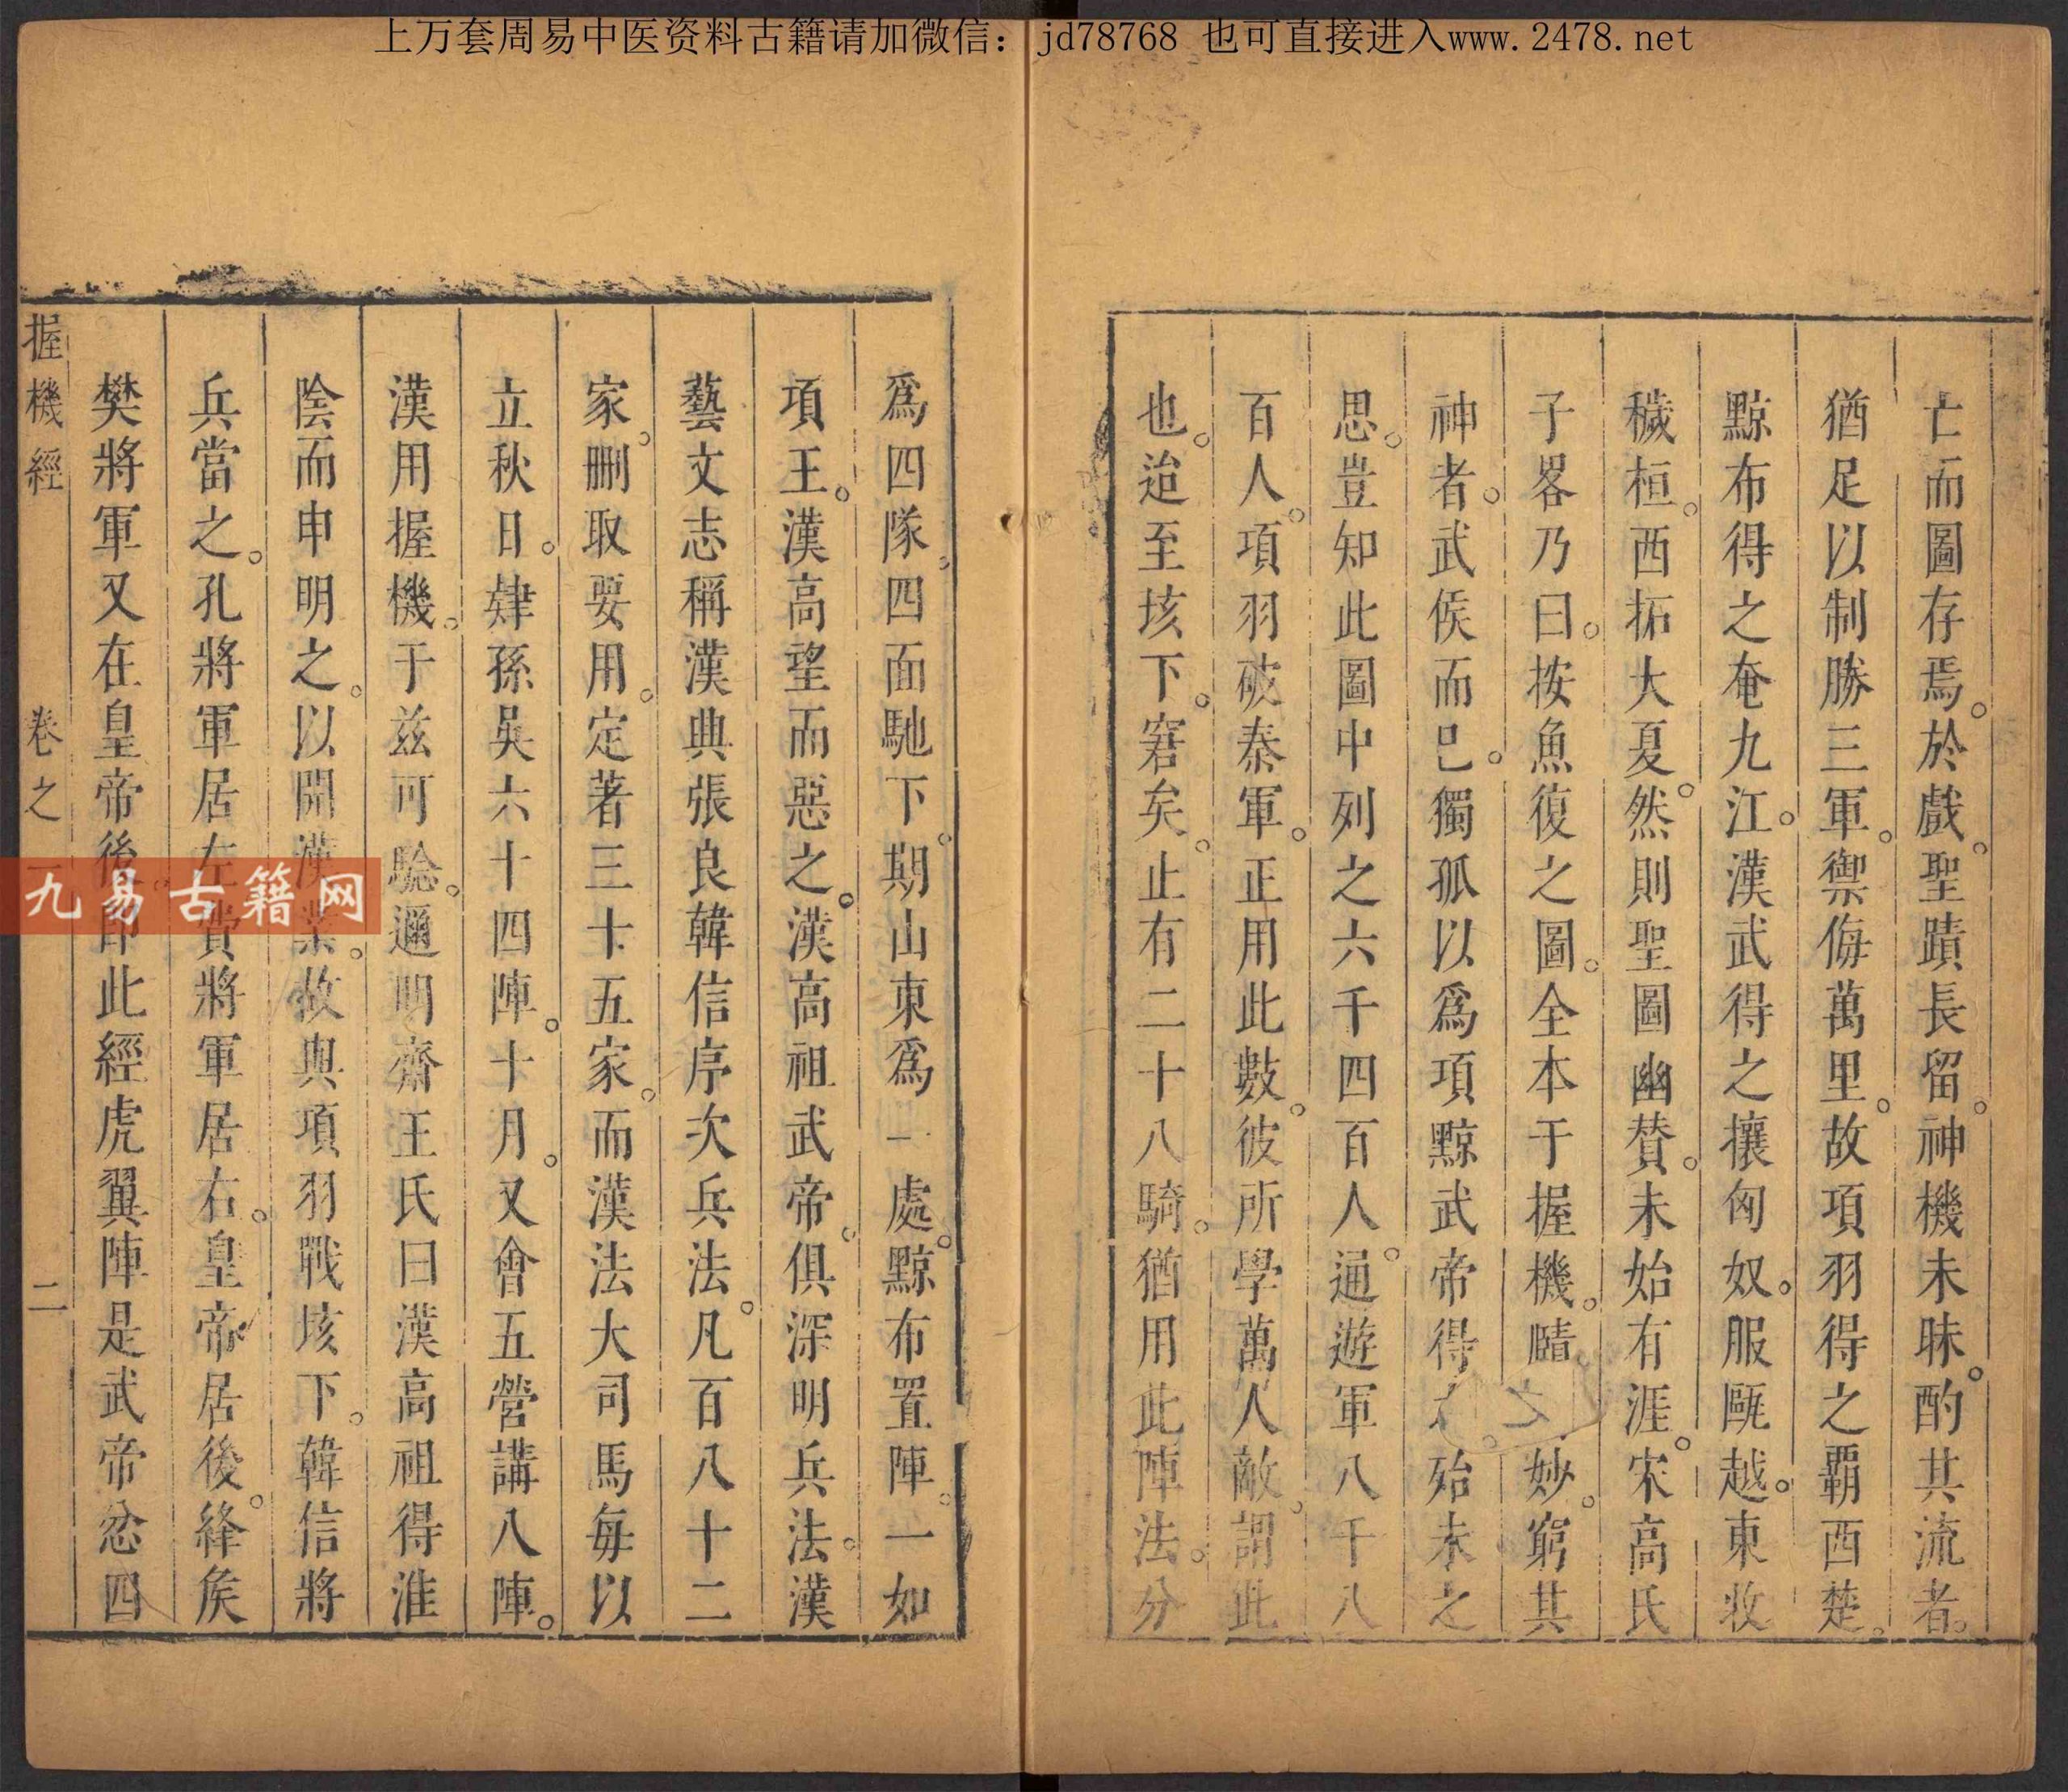 上万套周易中医资料古籍请加微信：jd78768 也可直接进入www.2478.net
亡而圖存焉。於戲。聖蹟長留。神機未昧。酌其流者。
猶足以制勝三軍。禦侮萬里。故項羽得之覇西楚。
黥布得之奄九江。漢武得之攘匈奴。服甌越。東收
穢桓。西拓大夏。然則聖圖幽賛。未始有涯。宋高氏
子畧乃曰。按魚復之圖。全本于握機。賾之妙。窮其
神者。武侯而已。獨孤以爲項黥武帝得殆未之
思。豈知此圖中列之六千四百人。遁遊軍八千八
百人。項羽破秦軍。正用此數。彼所學萬人敵。謂此
也。迨至垓下。窘矣。止有二十八騎。猶用此陣法。分
爲四隊。四面馳下。期山東爲一處。黥布置陣。一如
項王。漢高望而惡之。漢高祖武帝。俱深明兵法。漢
藝文志稱漢典張良韓信序次兵法。凡百八十二
家。刪取要用。定著三十五家。而漢法大司馬每以
立秋日。肄孫吳六十四陣。十月。又會五營講八陣。
漢用握機。于兹可驗。邇明齋王氏曰漢高祖得淮
陰而申明之。以開漢業。故與項羽戰垓下。韓信將
兵當之。孔將軍居左費將軍居右。皇帝居後。絳矦
樊將軍又在皇帝後。即此經虎翼陣是武帝忿四
握機經 卷之一 二
九易古籍网